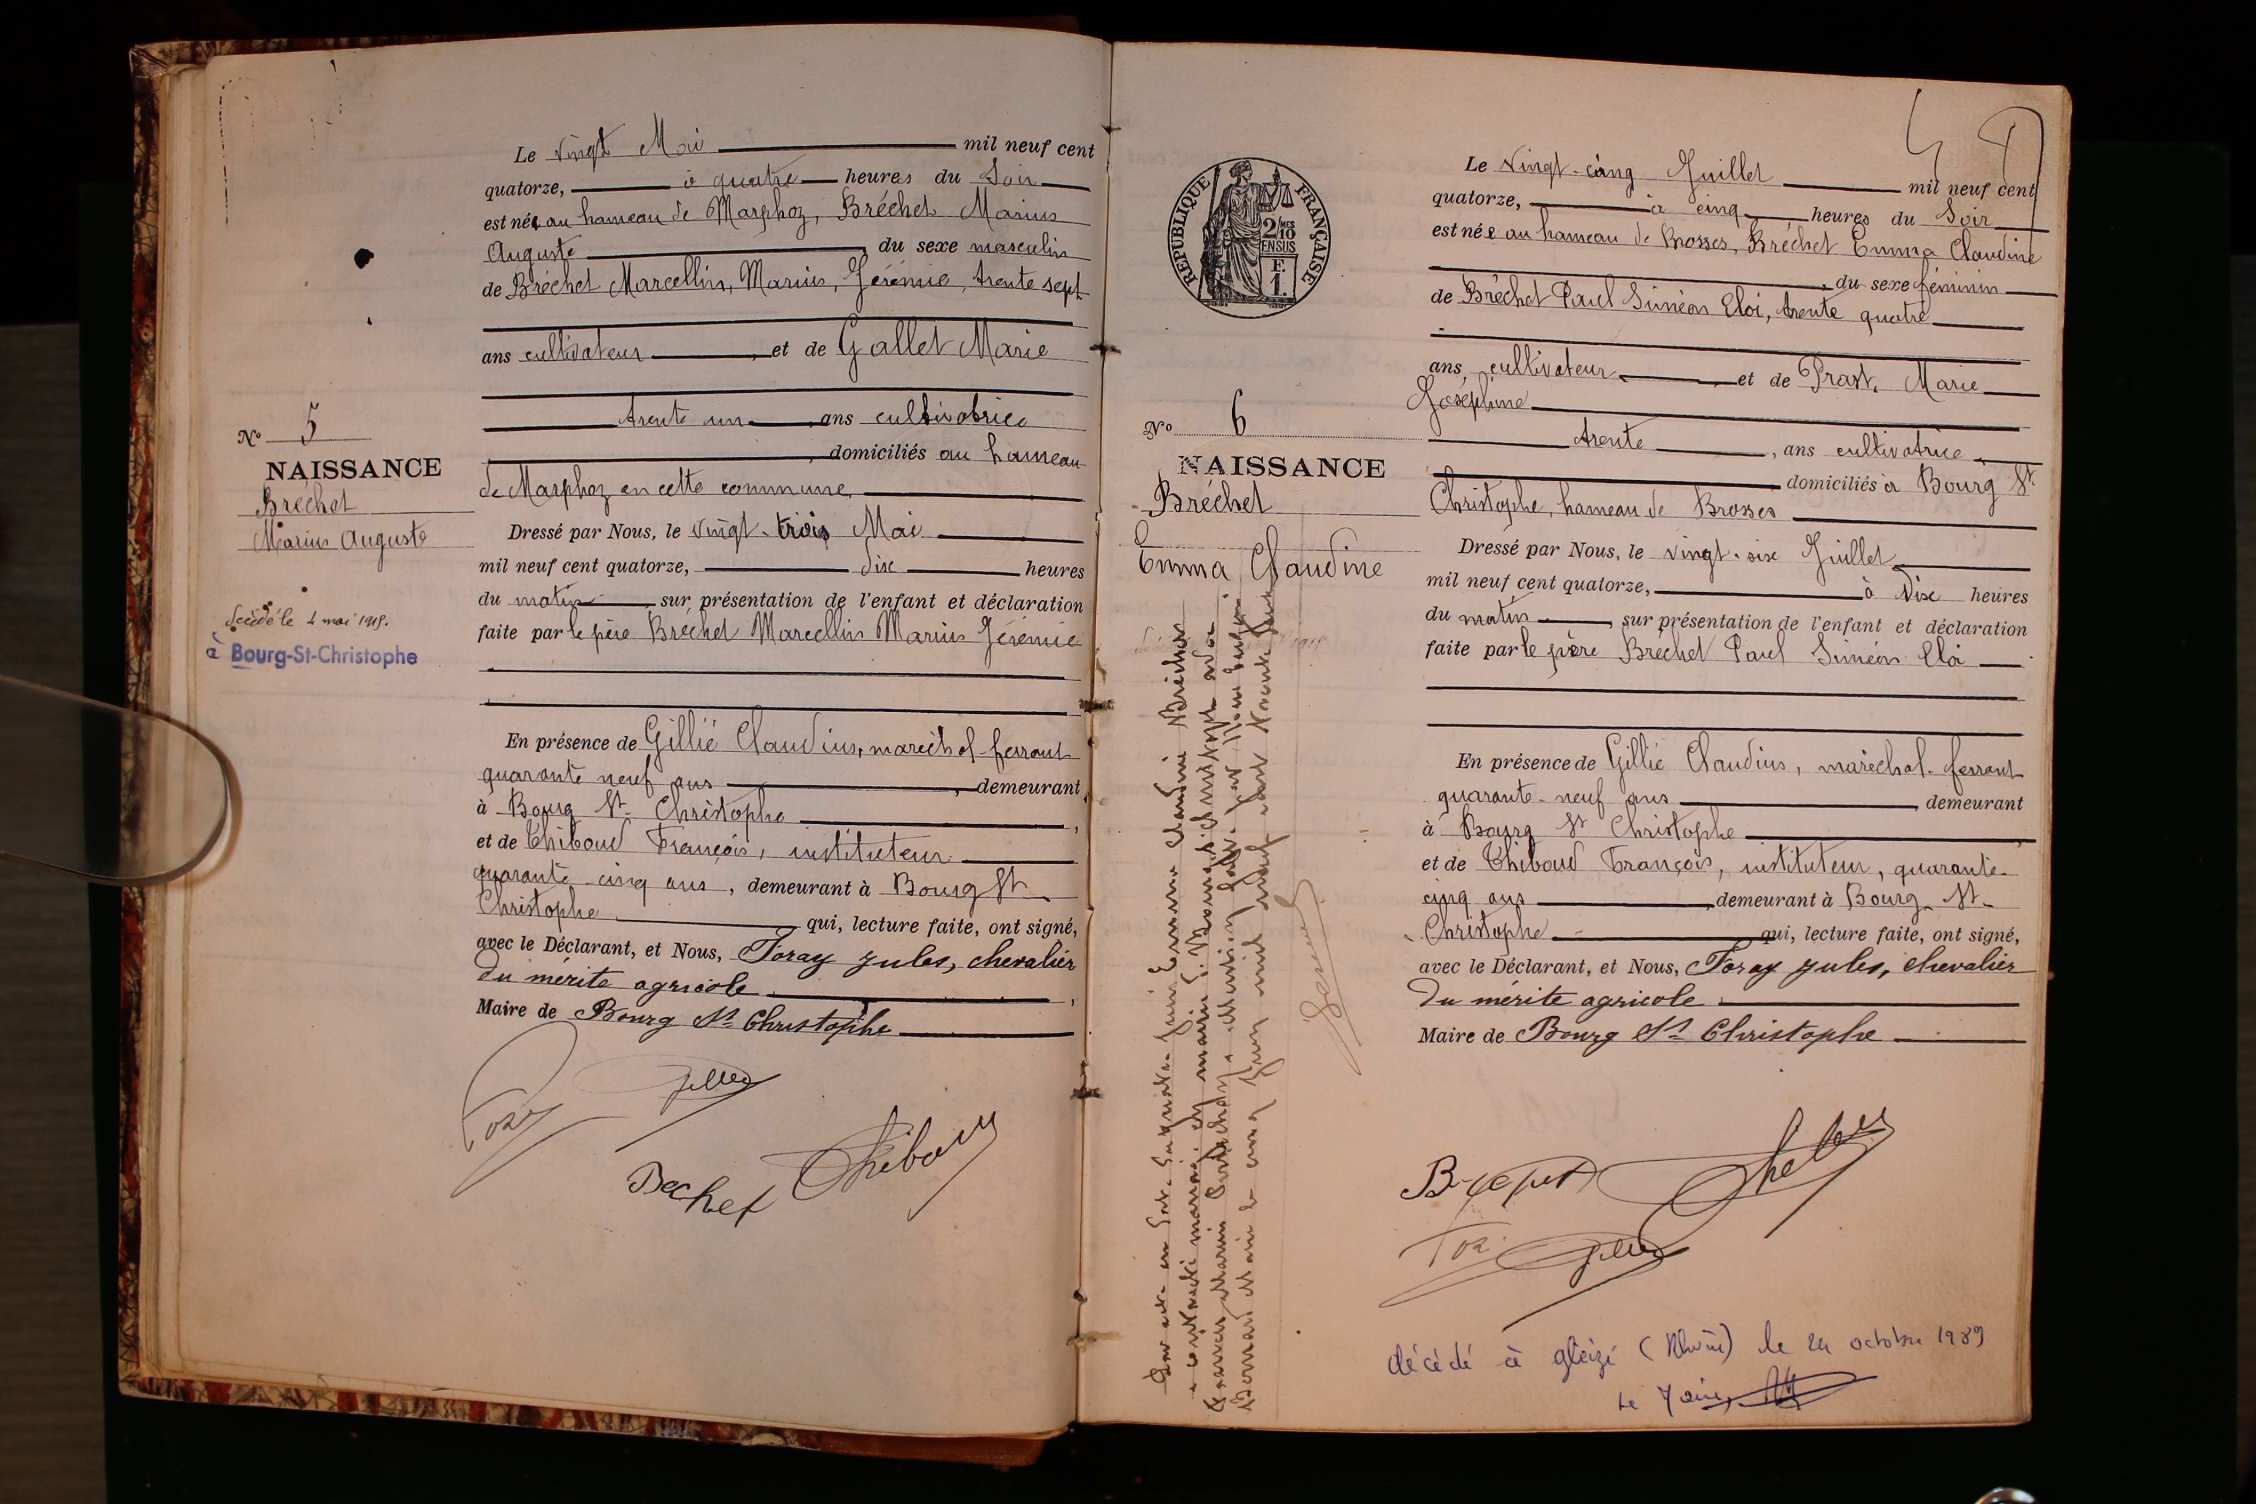 Le vingt Mai mil neuf cent
quatorze, à quatre heures du Soir
est née au hameau de Marphoz, Bréchet Marius
Auguste du sexe masculin
de Bréchet Marcellin, Marius, Jérémie, trente sept
ans cultivateur et de Gallet Marie
trente un ans cultivatrice
domiciliés au hameau
de Marphoz en cette commune.
Dressé par Nous, le vingt-trois Mai
mil neuf cent quatorze, dix heures
du matin sur présentation de l'enfant et déclaration
faite par le père Bréchet Marcellin Marius Jérémie
En présence de Gillié Claudius, maréchal-ferrant
quarante neuf ans, demeurant
à Bourg St Christophe,
et de Thiboud François, instituteur
quarante-cinq ans, demeurant à Bourg St
Christophe qui, lecture faite, ont signé,
avec le Déclarant, et Nous, Foray Jules, chevalier
du mérite agricole,
Maire de Bourg St Christophe
No 5
NAISSANCE
Bréchet
Marius Auguste
Décédé le 4 mai 1915.
à Bourg-St-Christophe
Foray
Gillié
Bechet
Thiboud
RÉPUBLIQUE FRANÇAISE
2/10MES
EN SUS
F.
1.
No 6
NAISSANCE
Bréchet
Emma Claudine
Le vingt-cinq Juillet mil neuf cent
quatorze, à cinq heures du Soir
est née au hameau de Brosses, Bréchet Emma Claudine
, du sexe féminin
de Bréchet Paul Siméon Eloi, trente quatre
ans, cultivateur, et de Prast, Marie
Joséphine
trente, ans cultivatrice
domiciliés à Bourg St
Christophe, hameau de Brosses
Dressé par Nous, le vingt-six Juillet
mil neuf cent quatorze, à Dix heures
du matin, sur présentation de l'enfant et déclaration
faite par le père Bréchet Paul Siméon Eloi
En présence de Gillié Claudius, maréchal-ferrant
quarante-neuf ans, demeurant
à Bourg St Christophe
et de Thiboud François, instituteur, quarante-
cinq ans demeurant à Bourg-St-
Christophe qui, lecture faite, ont signé,
avec le Déclarant, et Nous, Foray Jules, chevalier
du mérite agricole.
Maire de Bourg St Christophe
Emma Claudine Bréchet
a contracté mariage en mairie de Bourg St Christophe
Bernard Marie le cinq Juin mil neuf cent
décédé à gleizé (Rhône) le 24 octobre 1989
Le Maire,